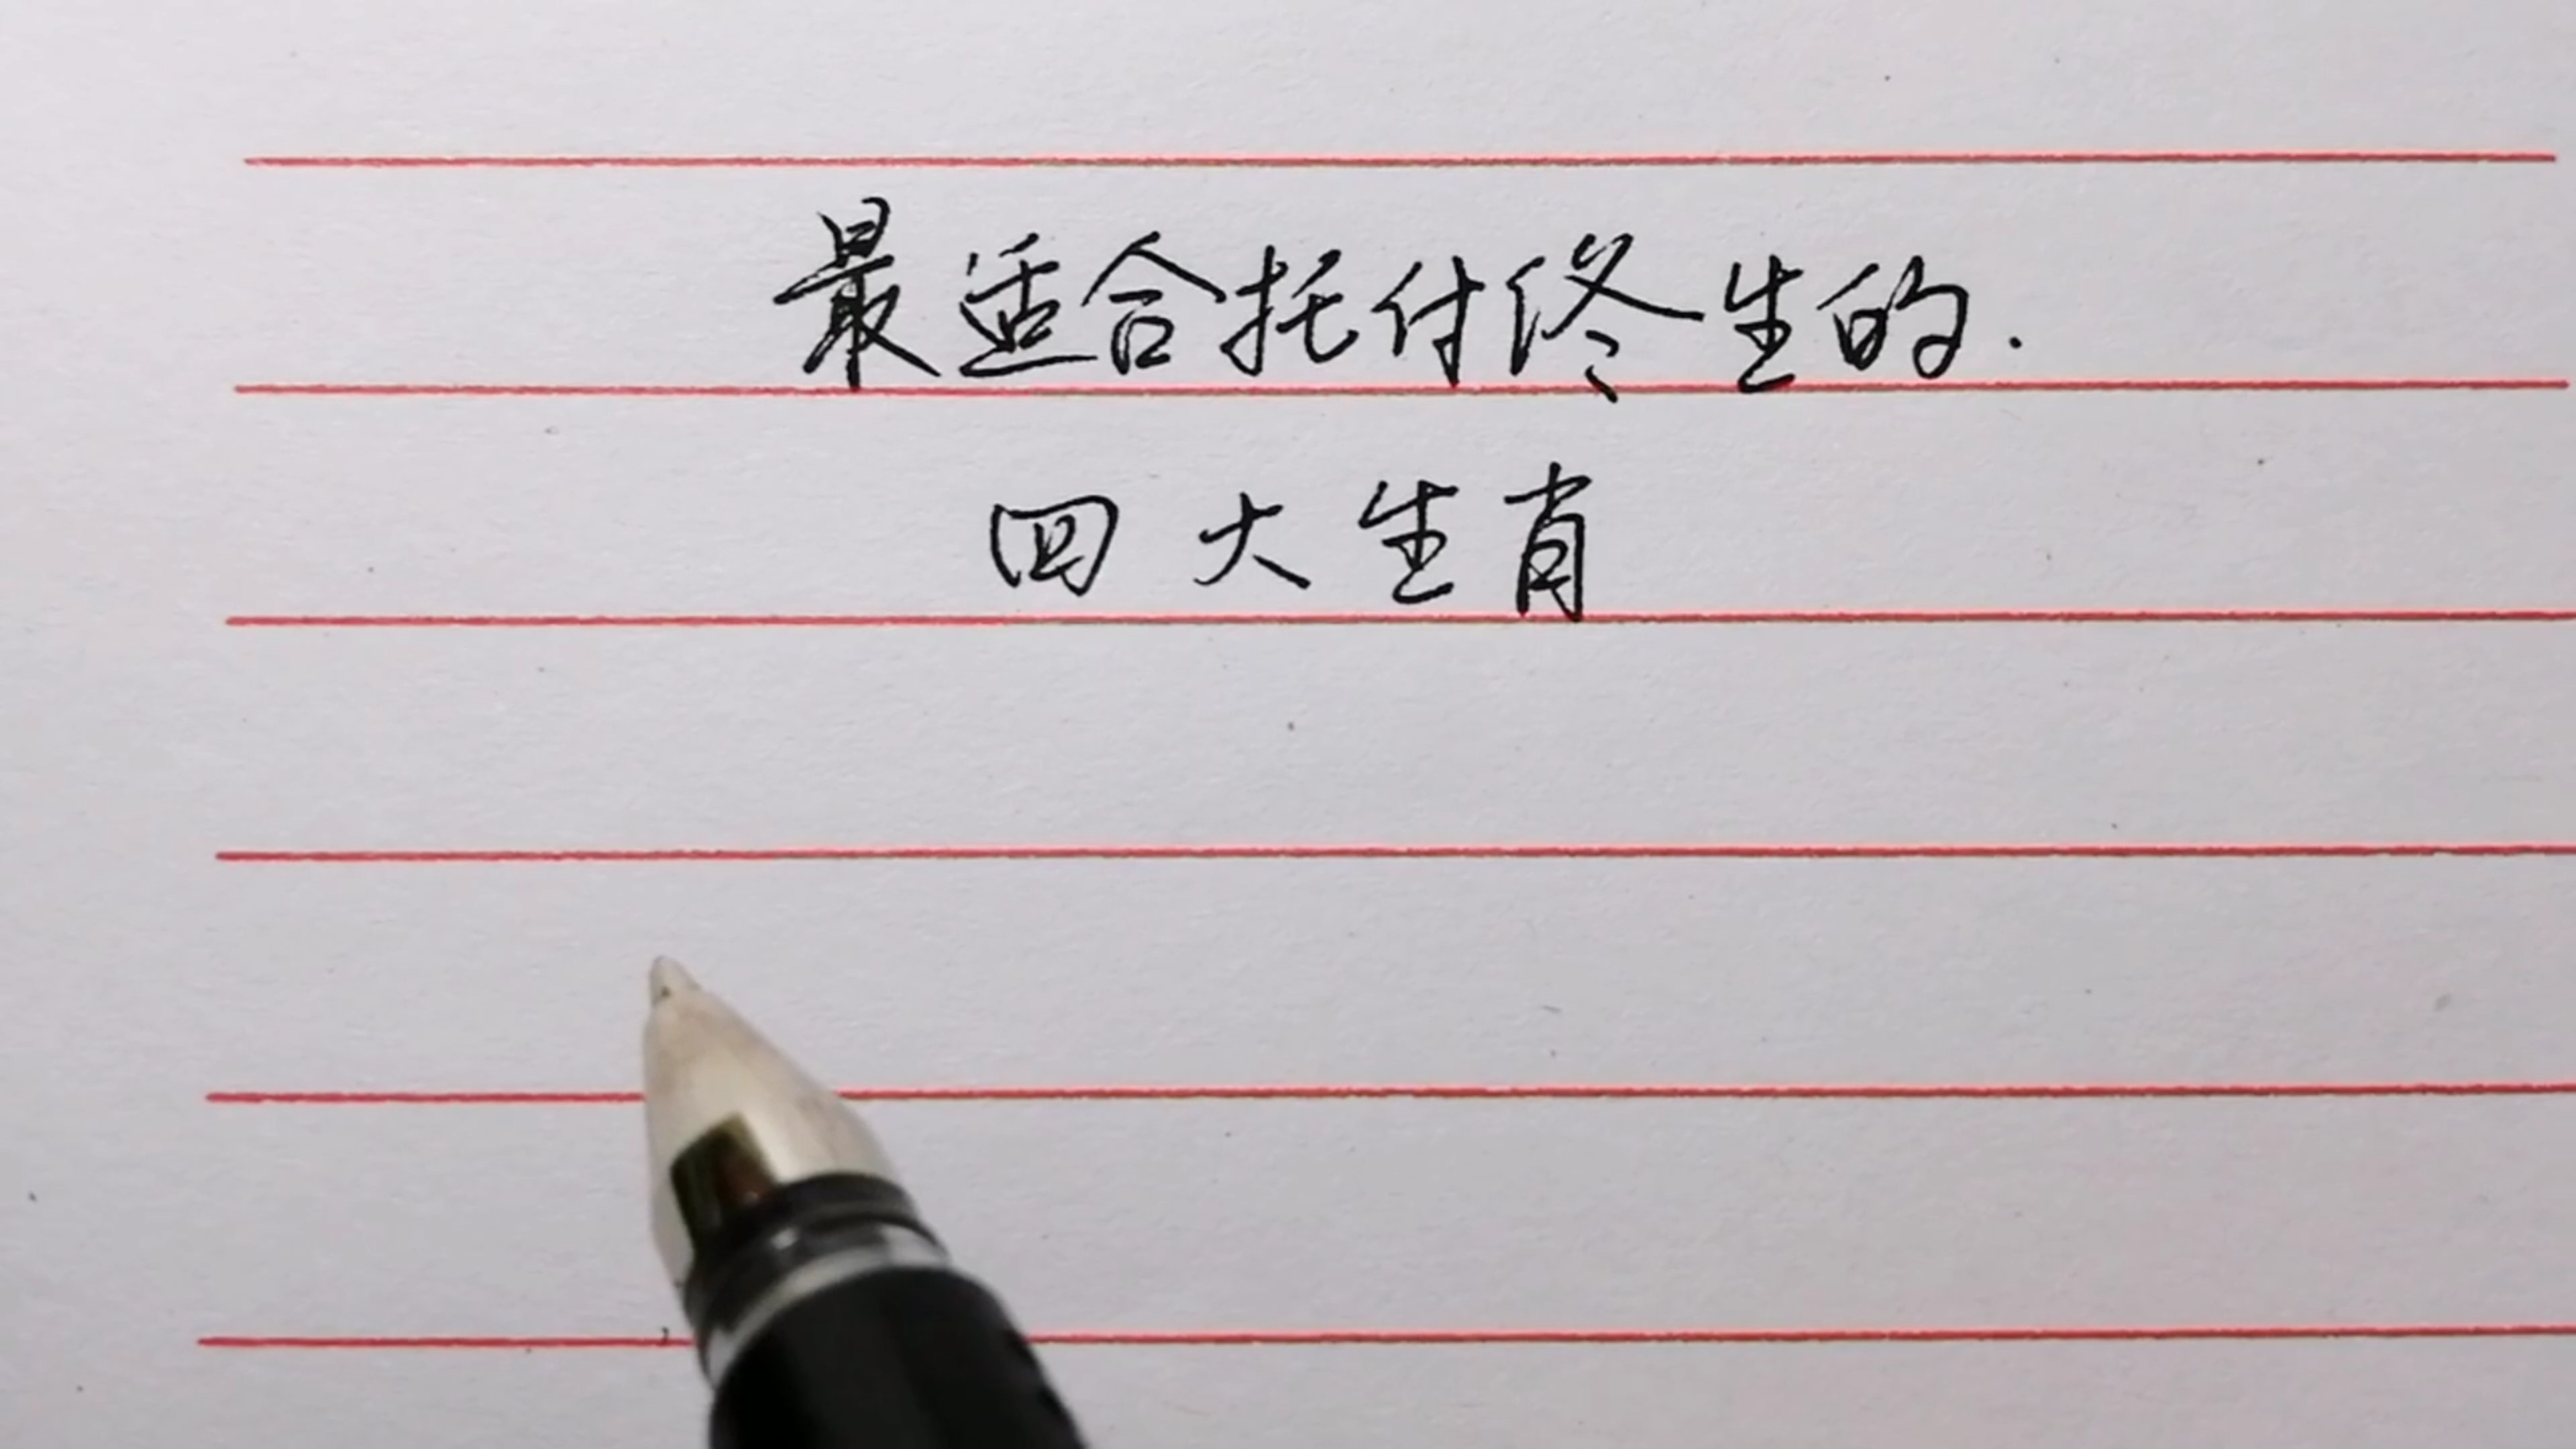 最适合托付终生的.
四大生肖